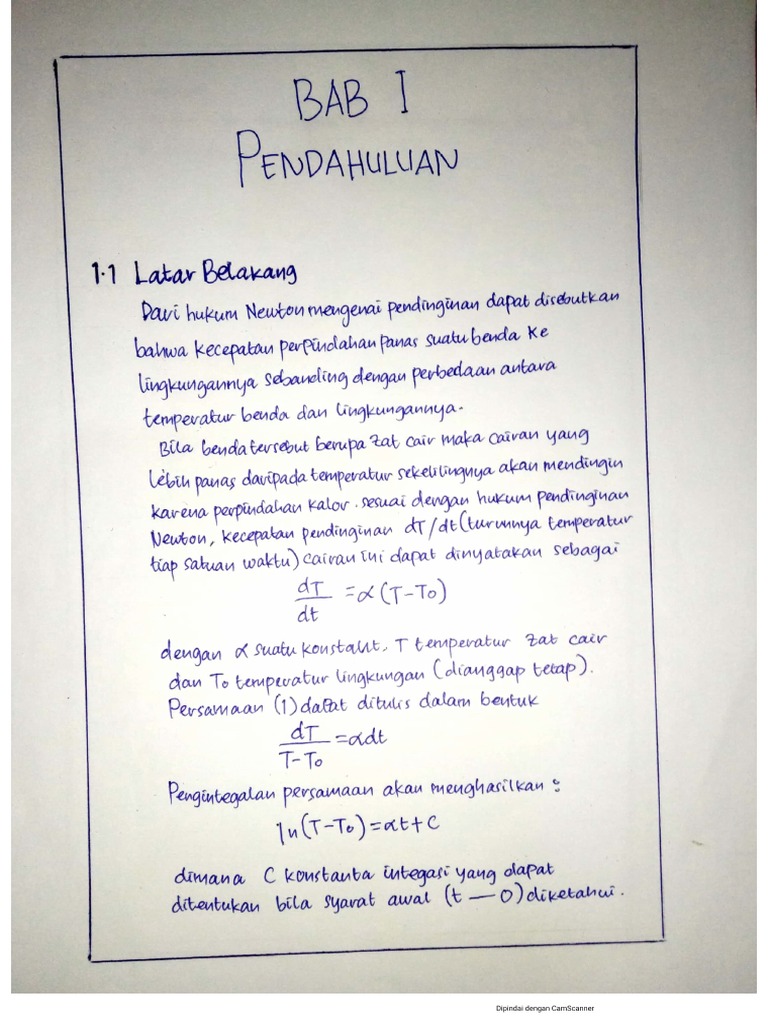 BAB I
PENDAHULUAN
1.1 Latar Belakang
Dari hukum Newton mengenai pendinginan dapat disebutkan
bahwa kecepatan perpindahan panas suatu benda ke
lingkungannya sebanding dengan perbedaan antara
temperatur benda dan lingkungannya.
Bila benda tersebut berupa zat cair maka cairan yang
lebih panas daripada temperatur sekelilingnya akan mendingin
karena perpindahan kalor. sesuai dengan hukum pendinginan
Newton, kecepatan pendinginan dT/dt (turunnya temperatur
tiap satuan waktu) cairan ini dapat dinyatakan sebagai
dT/dt = α (T-To)
dengan α suatu konstant, T temperatur zat cair
dan To temperatur lingkungan (dianggap tetap).
Persamaan (1) dapat ditulis dalam bentuk
dT/T-To = αdt
Pengintegalan persamaan akan menghasilkan :
ln(T-To) = αt + C
dimana C konstanta integasi yang dapat
ditentukan bila syarat awal (t — 0) diketahui.
Dipindai dengan CamScanner